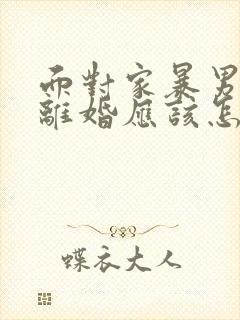 而對家暴男
離婚應該怎
蝶衣大人